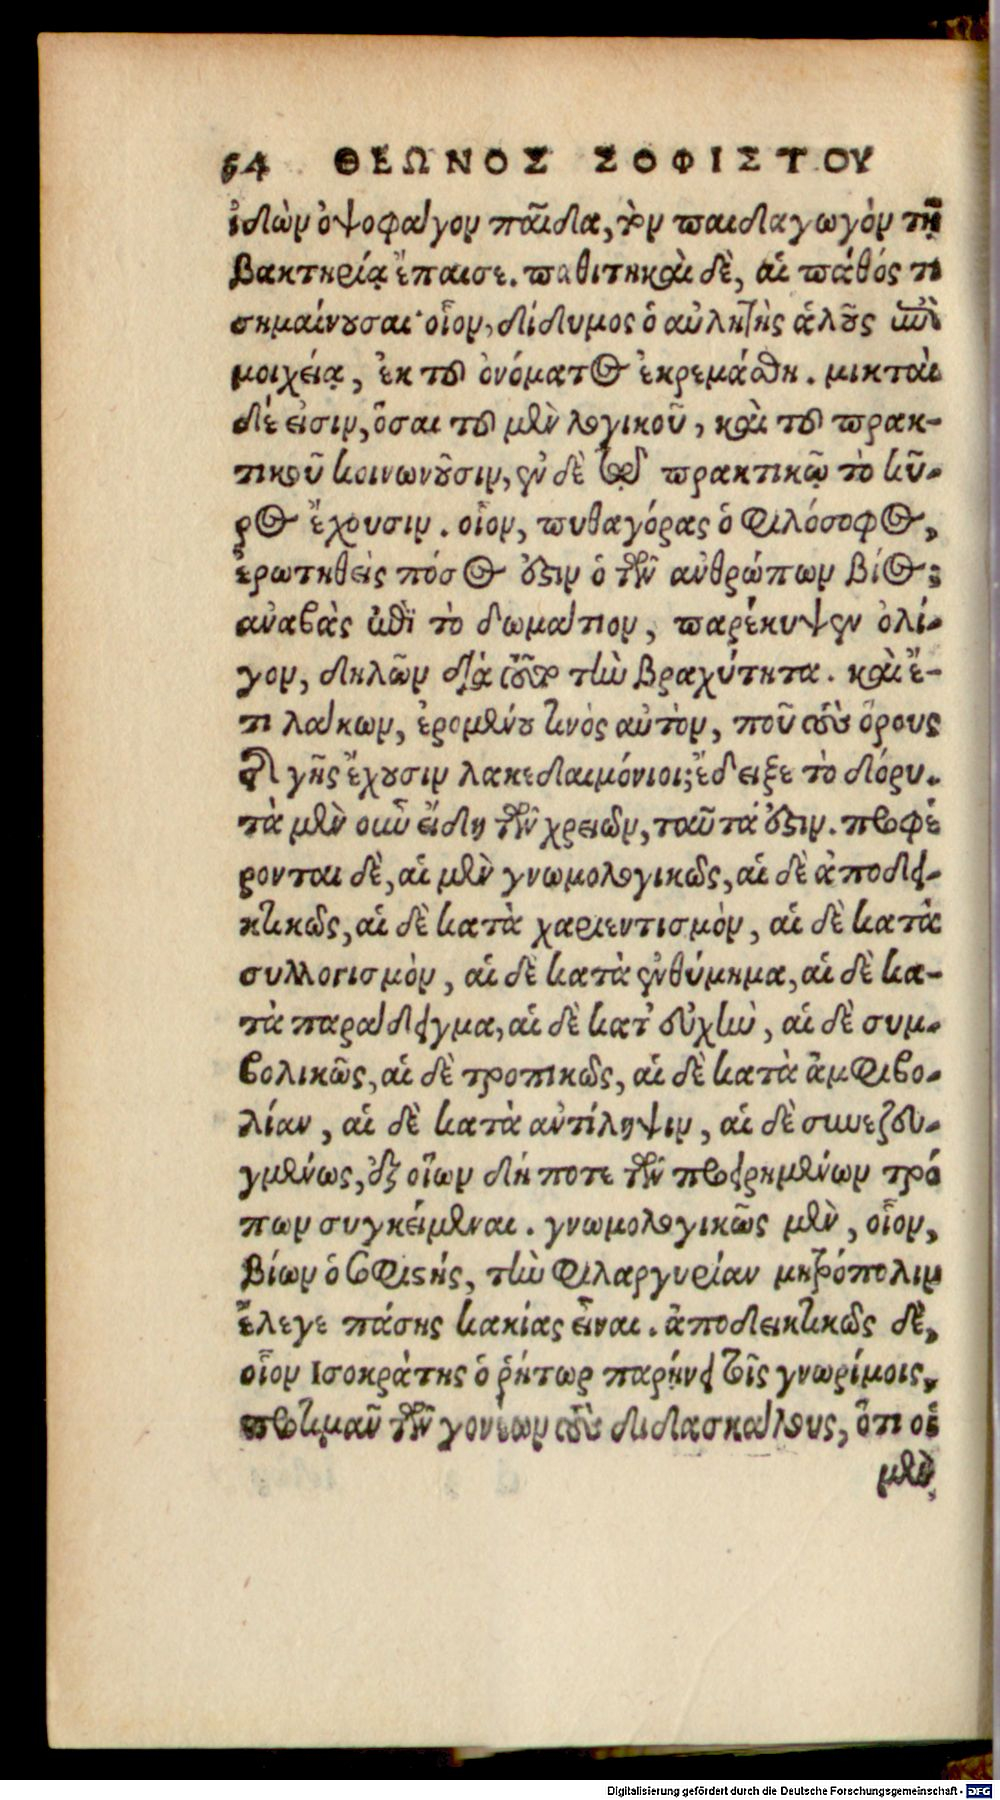 64 ΘΕΩΝΟΣ ΣΟΦΙΣΤΟΥ
ἰδὼν ὀψοφάγον παῖδα, τὸν παιδαγωγὸν τῇ
βακτηρίᾳ ἔπαισε. παθιτηκαὶ δὲ, αἱ πάθός τι
σημαίνουσαι· οἷον, δίδυμος ὁ αὐλητὴς ἁλοὺς ἐπὶ
μοιχείᾳ, ἐκ τοῦ ὀνόματος ἐκρεμάσθη. μικταὶ
δέ εἰσιν, ὅσαι τοῦ μὲν λογικοῦ, καὶ τοῦ πρακ-
τικοῦ κοινωνοῦσιν, ἐν δὲ τῷ πρακτικῷ τὸ κῦ-
ρος ἔχουσιν. οἷον, πυθαγόρας ὁ φιλόσοφος,
ἐρωτηθεὶς πόσος ἐστιν ὁ τῶν ἀνθρώπων βίος;
ἀναβὰς ἐπὶ τὸ δωμάτιον, παρέκυψεν ὀλί-
γον, δηλῶν διὰ τοῦτο τὴν βραχύτητα. καὶ ἔ-
τι λάκων, ἐρομένου τινὸς αὐτὸν, ποῦ τοὺς ὅρους
τῆς γῆς ἔχουσιν λακεδαιμόνιοι; ἔδειξε τὸ δόρυ.
τὰ μὲν οὖν εἴδη τῶν χρειῶν, ταῦτά ἐστιν. προφέ
ρονται δὲ, αἱ μὲν γνωμολογικῶς, αἱ δὲ ἀποδει-
κτικῶς, αἱ δὲ κατὰ χαριεντισμὸν, αἱ δὲ κατὰ
συλλογισμὸν, αἱ δὲ κατὰ ἐνθύμημα, αἱ δὲ κα-
τὰ παράδειγμα, αἱ δὲ κατ' εὐχὴν, αἱ δὲ συμ-
βολικῶς, αἱ δὲ τροπικῶς, αἱ δὲ κατὰ ἀμφιβο-
λίαν, αἱ δὲ κατὰ ἀντίληψιν, αἱ δὲ συνεζευ-
γμένως, ἐξ οἵων δή ποτε τῶν προειρημένων τρό
πων συγκείμεναι. γνωμολογικῶς μὲν, οἷον,
Βίων ὁ σοφιστής, τὴν φιλαργυρίαν μητρόπολιν
ἔλεγε πάσης κακίας εἶναι. ἀποδεικτικῶς δὲ,
οἷον Ισοκράτης ὁ ῥήτωρ παρῄνει τοῖς γνωρίμοις,
προτιμᾶν τῶν γονέων τοὺς διδασκάλους, ὅτι οἱ
μὲν
Digitalisierung gefördert durch die Deutsche Forschungsgemeinschaft - DFG